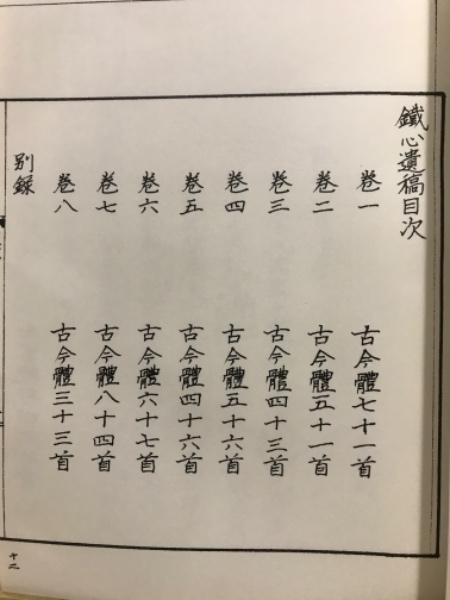 鐵心遺稿目次
卷一 古今體七十一首
卷二 古今體五十一首
卷三 古今體四十三首
卷四 古今體五十六首
卷五 古今體四十六首
卷六 古今體六十七首
卷七 古今體八十四首
卷八 古今體三十三首
别録
十二